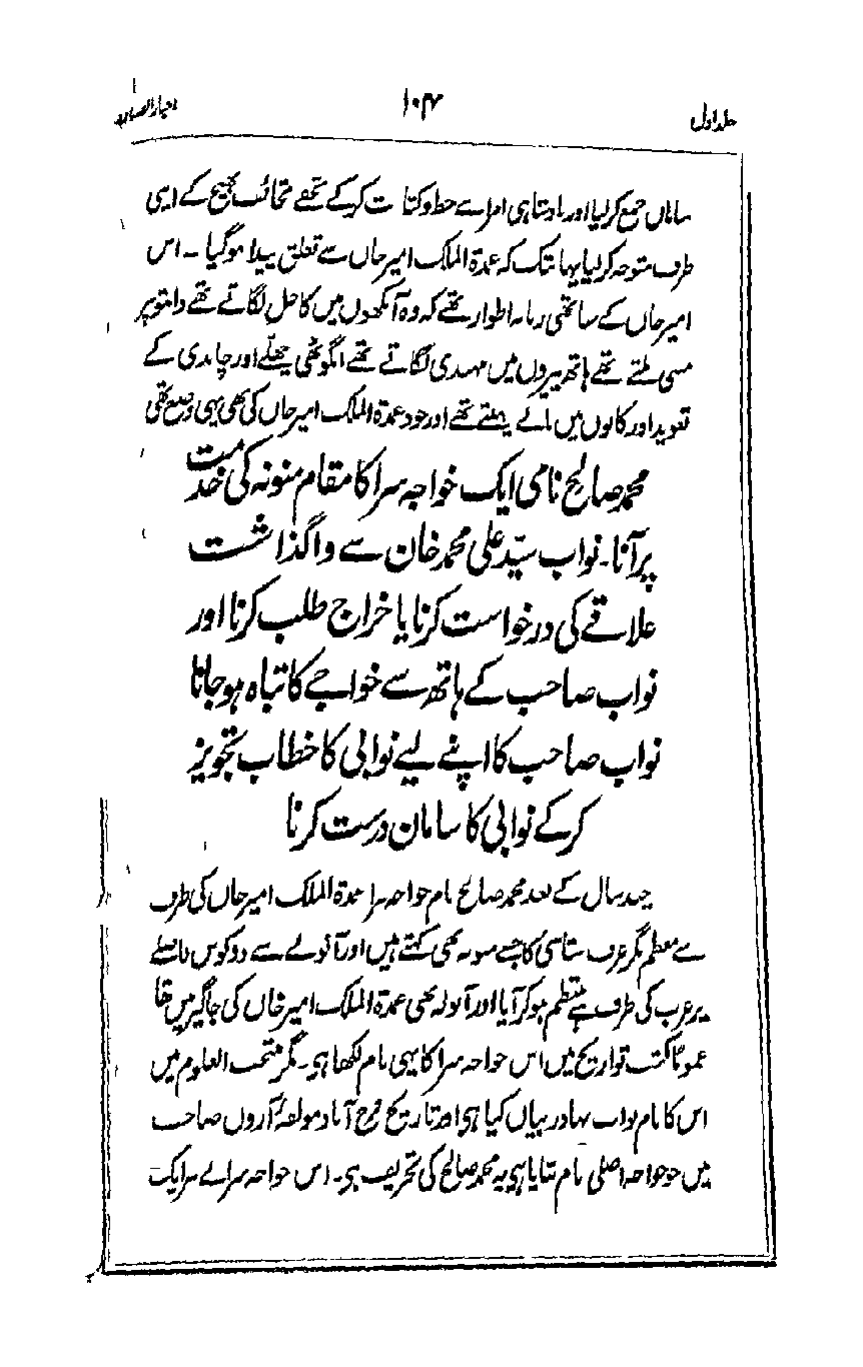 جلد اول ۱۰۴ اخبار الصنادید
سامان جمع کرلیا اور بادشاہی امرا سے خط و کتابت کرکے تحفے تحائف بھیج کے اپنی
طرف متوجہ کرلیا یہانتک کہ عمدۃ الملک امیر خان سے تعلق پیدا ہوگیا ۔ اس
امیر خان کے ساتھی زنانہ اطوار تھے کہ وہ آنکھوں میں کاجل لگاتے تھے دانتوں پر
مسی ملتے تھے ہاتھ پیروں میں مہندی لگاتے تھے انگوٹھی چھلے اور چاندی کے
تعویذ اور کانوں میں بالے پہنتے تھے اور خود عمدۃ الملک امیر خان کی بھی یہی وضع تھی
محمد صالح نامی ایک خواجہ سرا کا مقام منونہ کی خدمت
پر آنا ۔ نواب سید علی محمد خان سے واگذاشت
علاقے کی درخواست کرنا یا خراج طلب کرنا اور
نواب صاحب کے ہاتھ سے خواجے کا تباہ ہوجانا
نواب صاحب کا اپنے لیے نوابی کا خطاب تجویز
کرکے نوابی کا سامان درست کرنا
چند سال کے بعد محمد صالح نام خواجہ سرا عمدۃ الملک امیر خان کی طرف
سے معظم نگر عرف ستاسی کا جسے منونہ بھی کہتے ہیں اور آنولے سے دو کوس فاصلے
پر غرب کی طرف ہے منتظم ہوکر آیا اور آنولہ بھی عمدۃ الملک امیر خان کی جاگیر میں تھا
عموماً کتب تواریخ میں اس خواجہ سرا کا یہی نام لکھا ہی ۔ مگر منتخب العلوم میں
اس کا نام نواب بہادر بیان کیا ہی اور تاریخ فرخ آباد مولفہ آرون صاحب
میں جو خواجہ اصلی نام بتایا ہی یہ محمد صالح کی تحریف ہی ۔ اس خواجہ سرا نے سر ایک